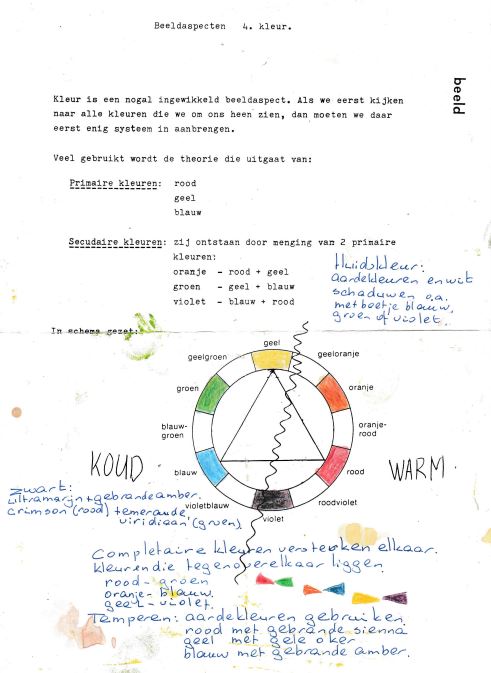 Beeldaspecten 4. kleur.
beeld
Kleur is een nogal ingewikkeld beeldaspect. Als we eerst kijken
naar alle kleuren die we om ons heen zien, dan moeten we daar
eerst enig systeem in aanbrengen.
Veel gebruikt wordt de theorie die uitgaat van:
Primaire kleuren: rood
geel
blauw
Secudaire kleuren: zij ontstaan door menging van 2 primaire
kleuren:
oranje - rood + geel
groen - geel + blauw
violet - blauw + rood
Huidskleur:
aardekleuren en wit
schaduwen o.a.
met beetje blauw,
groen of violet.
In schema gezet:
geel
geelgroen
geeloranje
groen
oranje
blauw-
groen
oranje-
rood
KOUD
blauw
rood
WARM
violetblauw
roodviolet
violet
zwart:
ultramarijn + gebrande amber.
crimson (rood) temerande
viridiaan (groen)
Completaire kleuren versterken elkaar.
kleuren die tegenover elkaar liggen
rood - groen
oranje - blauw.
geel - violet.
Temperen: aardekleuren gebruiken.
rood met gebrande sienna
geel met gele oker
blauw met gebrande amber.